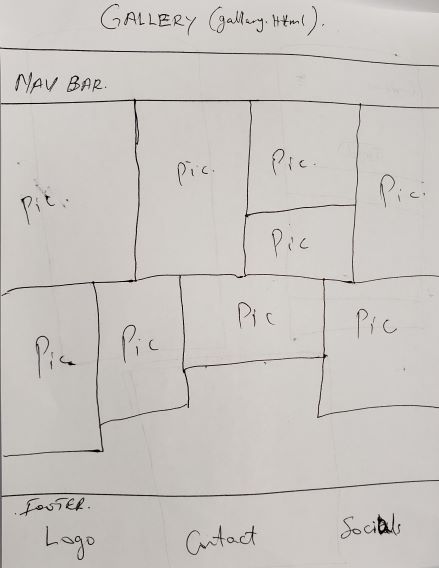 GALLERY (gallary.Html).
NAV BAR.
Pic.
Pic.
Pic.
Pic.
Pic
Pic
Pic
Pic
Pic
FOOTER.
Logo
Contact
Socials